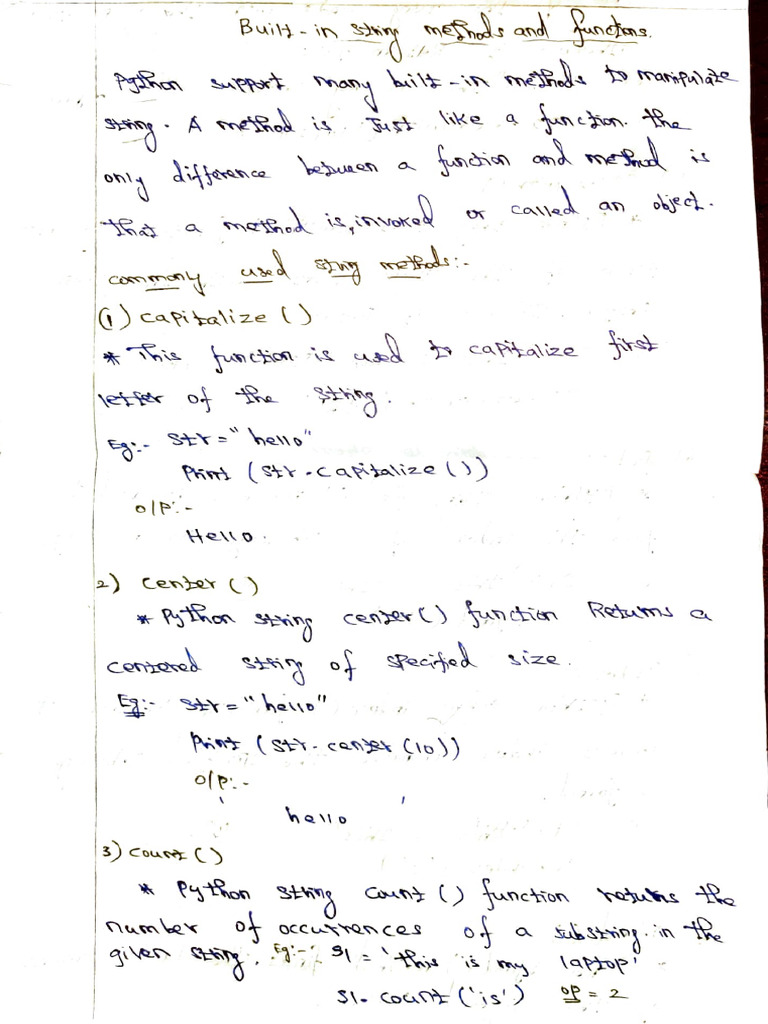 Built-in string methods and functions.
Python support many built-in methods to manipulate
string. A method is Just like a function. the
only difference between a function and method is
that a method is, invoked or called an object.
commony used sting methods:-
(1) capitalize ()
* This function is used to capitalize first
letter of the string.
Eg:- str = "hello"
Print (str.capitalize ())
o/p:-
Hello.
2) center ()
* Python string center() function Returns a
centered string of specified size.
Eg:- str = "hello"
print (str.center (10))
o/p:-
hello
3) count ()
* Python string count () function returns the
number of occurrences of a substring in the
given string. Eg:- s1 = 'this is my laptop'
s1. count ('is') op = 2